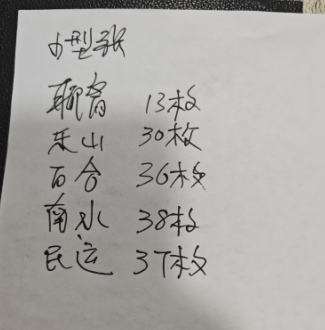 小型张
聊斋 13枚
乐山 30枚
百合 36枚
南水 38枚
民运 37枚